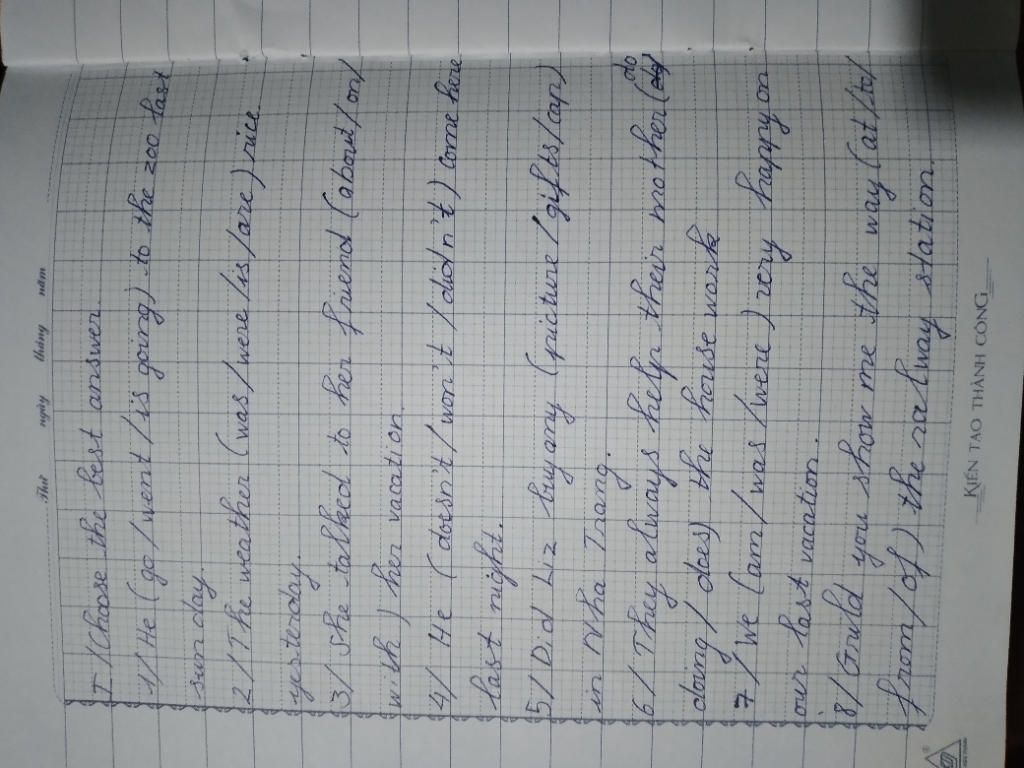 Thứ ngày tháng năm
I / Choose the best answer.
1/ He (go / went / is going) to the zoo last
sunday.
2 / The weather (was / were / is / are) nice
yesterday.
3 / She talked to her friend (about / on /
with) her vacation.
4 / He (doesn't / won't / didn't) come here
last night.
5 / Did Liz buy any (picture / gifts / cap)
in Nha Trang.
6 / They always help their mother (do
doing / does) the house work
7 / We (am / was / were) very happy on
our last vacation.
8 / Could you show me the way (at / to /
from / of) the ralway station.
KIẾN TẠO THÀNH CÔNG